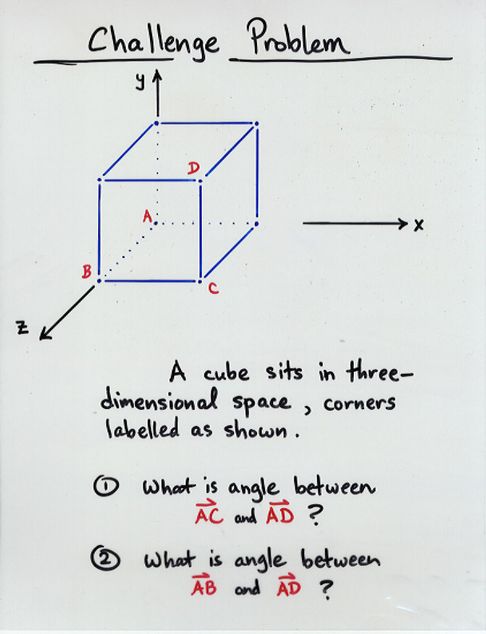 Challenge Problem
y
D
A
x
B
C
z
A cube sits in three-
dimensional space , corners
labelled as shown.
① What is angle between
AC and AD ?
② What is angle between
AB and AD ?